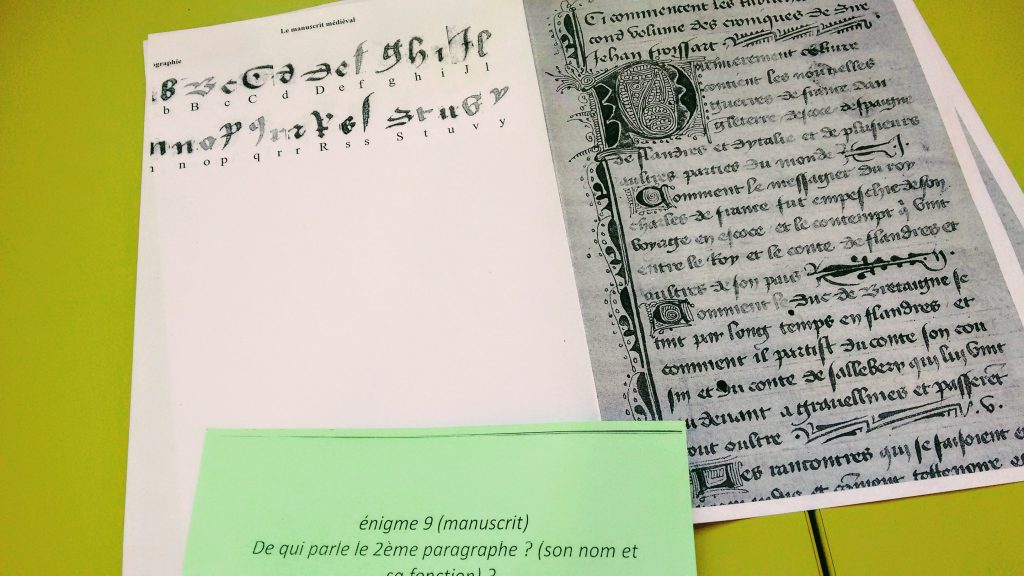 Le manuscrit médiéval
ographie
b B c C d D e f g h i J l
n o p q r r R s s S t u v y
Ci commencent les
cond volume des croniques de Sire
Jehan froissart
Premierement
contient les nouvelles
guerres de france dan
gleterre descoce despaigne
de flandres et dytalie et de plusieurs
aultres parties du monde
Comment le messagier du roy
charles de france fut empeschie de son
voyage en escoce et le contempt q̄ vint
entre le Roy et le conte de flandres et
aultres de son pais
Comment le Duc de Bretaigne se
tint par long temps en flandres et
comment il partist du conte son cou
sin et du conte de sallebery qui luy vint
au devant a gravellines et passerēt
tout oultre .v.
Des rancontres qui se faisoient e
énigme 9 (manuscrit)
De qui parle le 2ème paragraphe ? (son nom et
sa fonction) ?